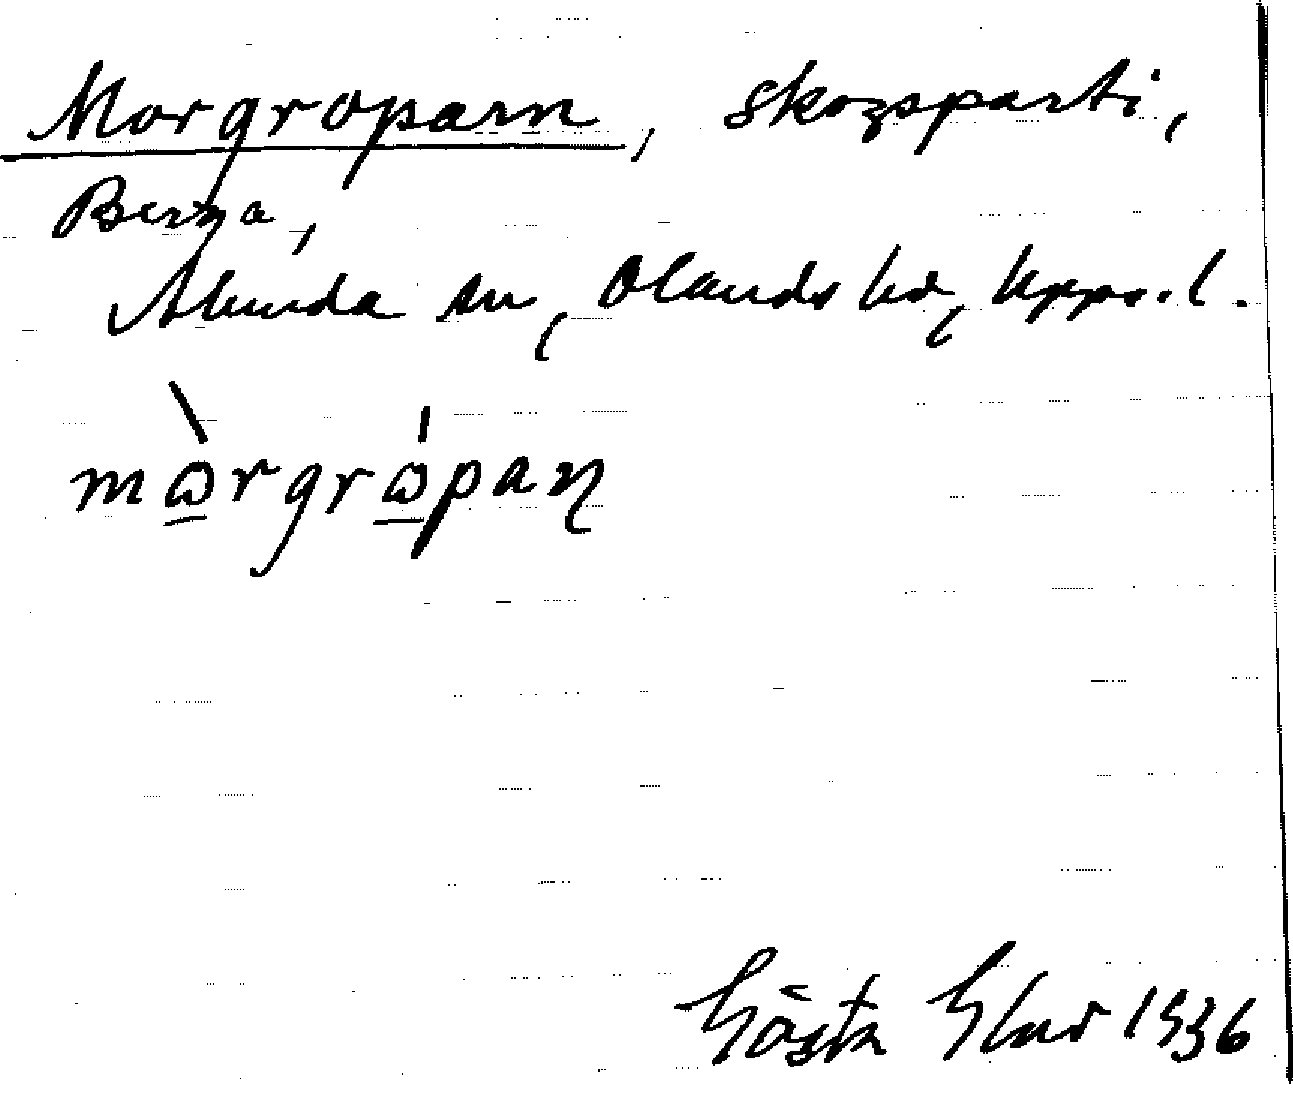 Morgroparn, skogsparti,
Berga,
Alunda sn, Olands hd, Upps.l.
mɷ̀rgrɷ́paꞃ
Gösta 1936